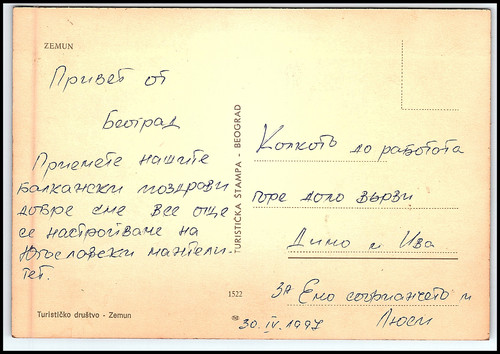 ZEMUN
Привет от
Београд
Приемете нашите
балкански поздрави
добре сме все още
се настройваме на
Югославски мантели-
тет.
Turističko društvo - Zemun
TURISTICKA ŠTAMPA - BEOGRAD
1522
Колкото до работата
горе долу върви
Димо и Ива
За Емо согрианчето и
Люси
30.IV.1997